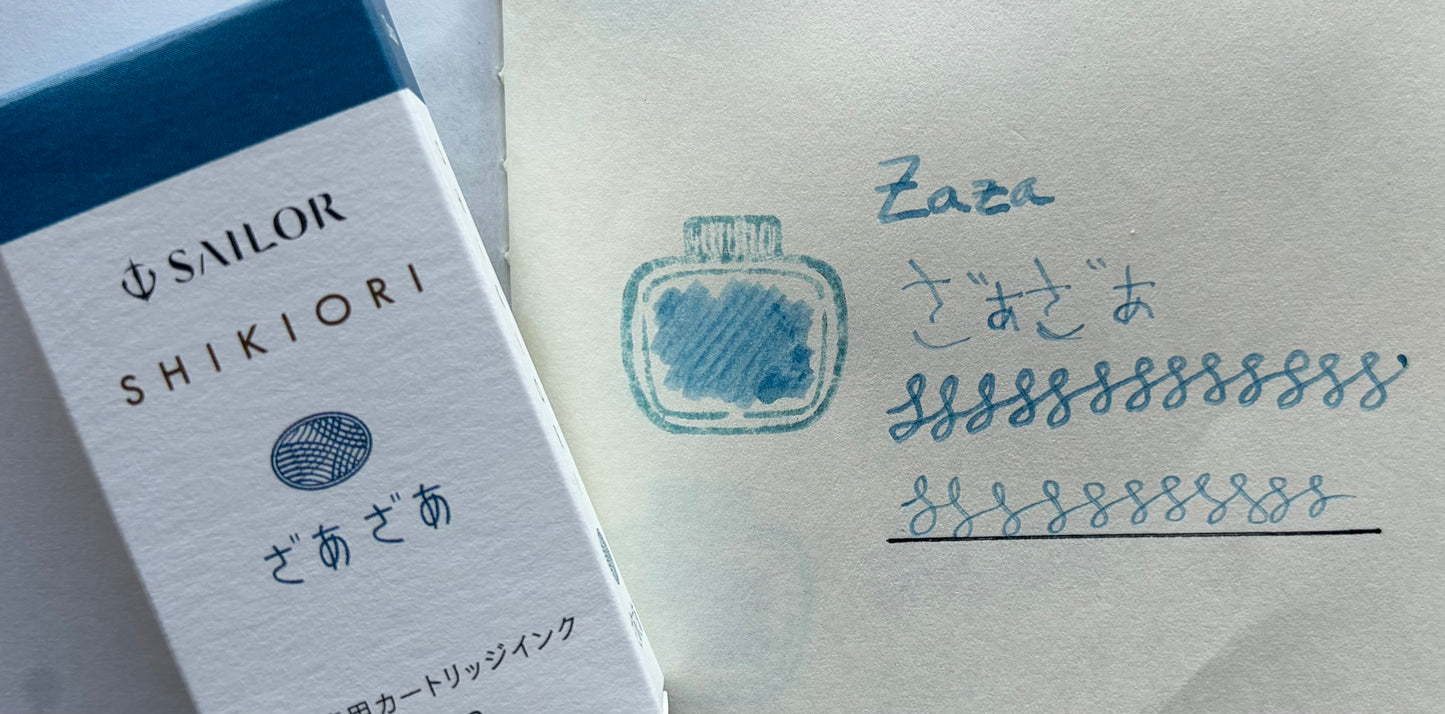 SAILOR
SHIKIORI
ざあざあ
用カートリッジインク
Zaza
ざあざあ